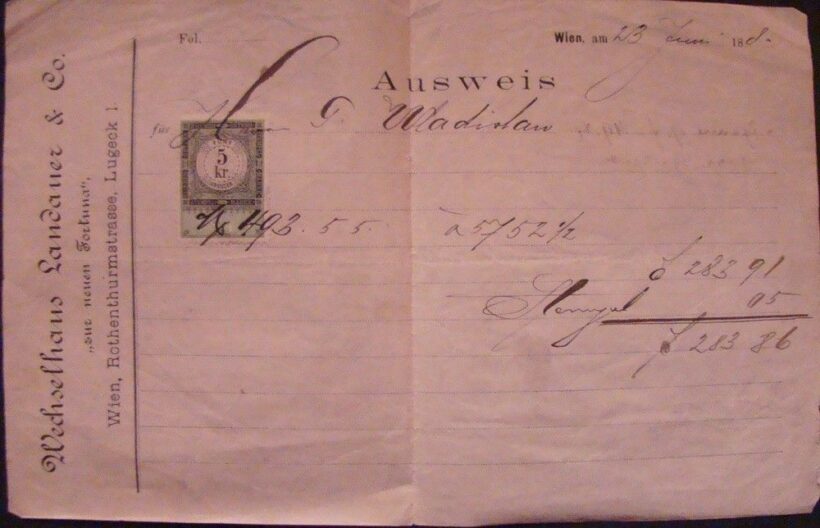 Wechselhaus Landauer & Co.
„zur neuen Fortuna“,
Wien, Rothenthurmstrasse, Lugeck 1.
Fol.
Wien, am 23 Juni 188.
Ausweis
für Herrn G. Wladislaw
5
kr.
493.55. à 57 52 1/2
f 283 91
Stempel 05
f 283 86